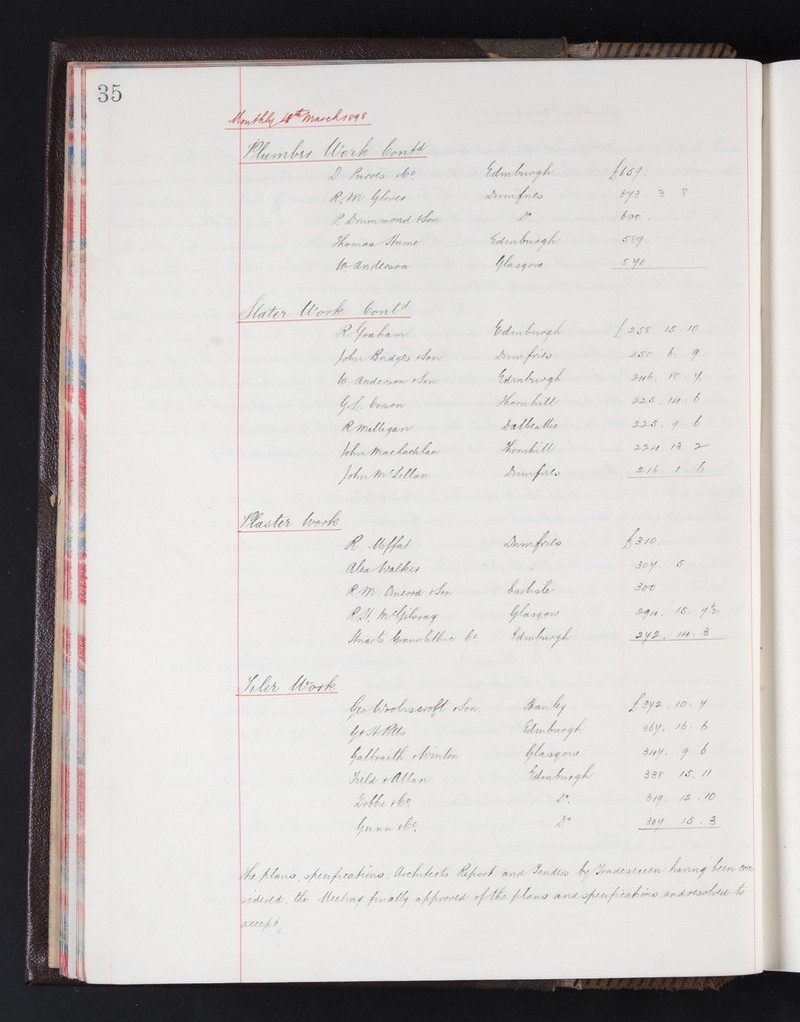 35
Monthly 18th March 1898
Plumber Work Contd
D Purves & Co. Edinburgh £659.
R. M. Glover Dumfries 643. 3. 8
P. Drummond & Son Do 600.
Thomas Hume Edinburgh 589.
W Anderson Glasgow 540.
Slater Work Contd
R Graham Edinburgh £258. 15. 10
John Bridges & Son Dumfries 250. 6. 9
W. Anderson & Son Edinburgh 246. 18. 4.
Thornhill 225. 14. 6
R Milligan Dalbeattie 225. 9. 6
John Maclachlan Thornhill 224. 13. 2
John McLellan Dumfries 216. 1. 6
Plaster Work
R. Moffat Dumfries £310.
Alex Walker " 304. 5.
R. M. Ormerod & Son Carlisle 300
R. McGilvray Glasgow 294. 15. 4½
Stuarts Granolithic Co. Edinburgh 242. 14. 3
Tiler Work
Geo Woolliscroft & Son. Hanley £372. 10. 4
Edinburgh 364. 16. 6
Galbraith & Winton Glasgow 344. 9. 6
Field & Allan Edinburgh 338. 15. 11
Dobbie & Co. Do. 319. 12. 10
Gunn & Co. Do 304. 15. 3
The plans, specifications, Architects Report and Tenders by Tradesmen having been con
sidered, the Meeting finally approved of the plans and specifications, and resolved to
accept